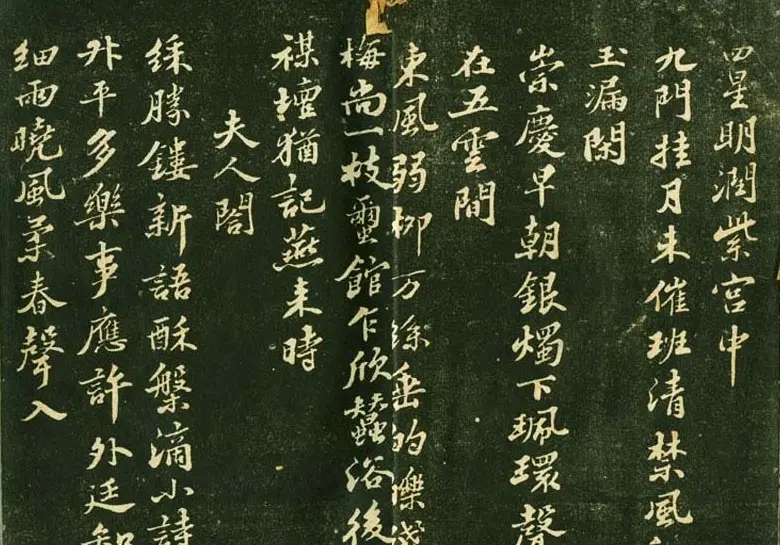 四星明潤紫宮中
九門挂月未催班清禁風
玉漏閑
崇慶早朝銀燭下珮環聲
在五雲間
東風弱柳万絲垂的皪殘
梅尚一枝蠒館乍欣蠶浴後
禖壇猶記燕来時
夫人閤
綵勝鏤新語酥槃滴小詩
升平多樂事應許外廷知
細雨曉風柔春聲入